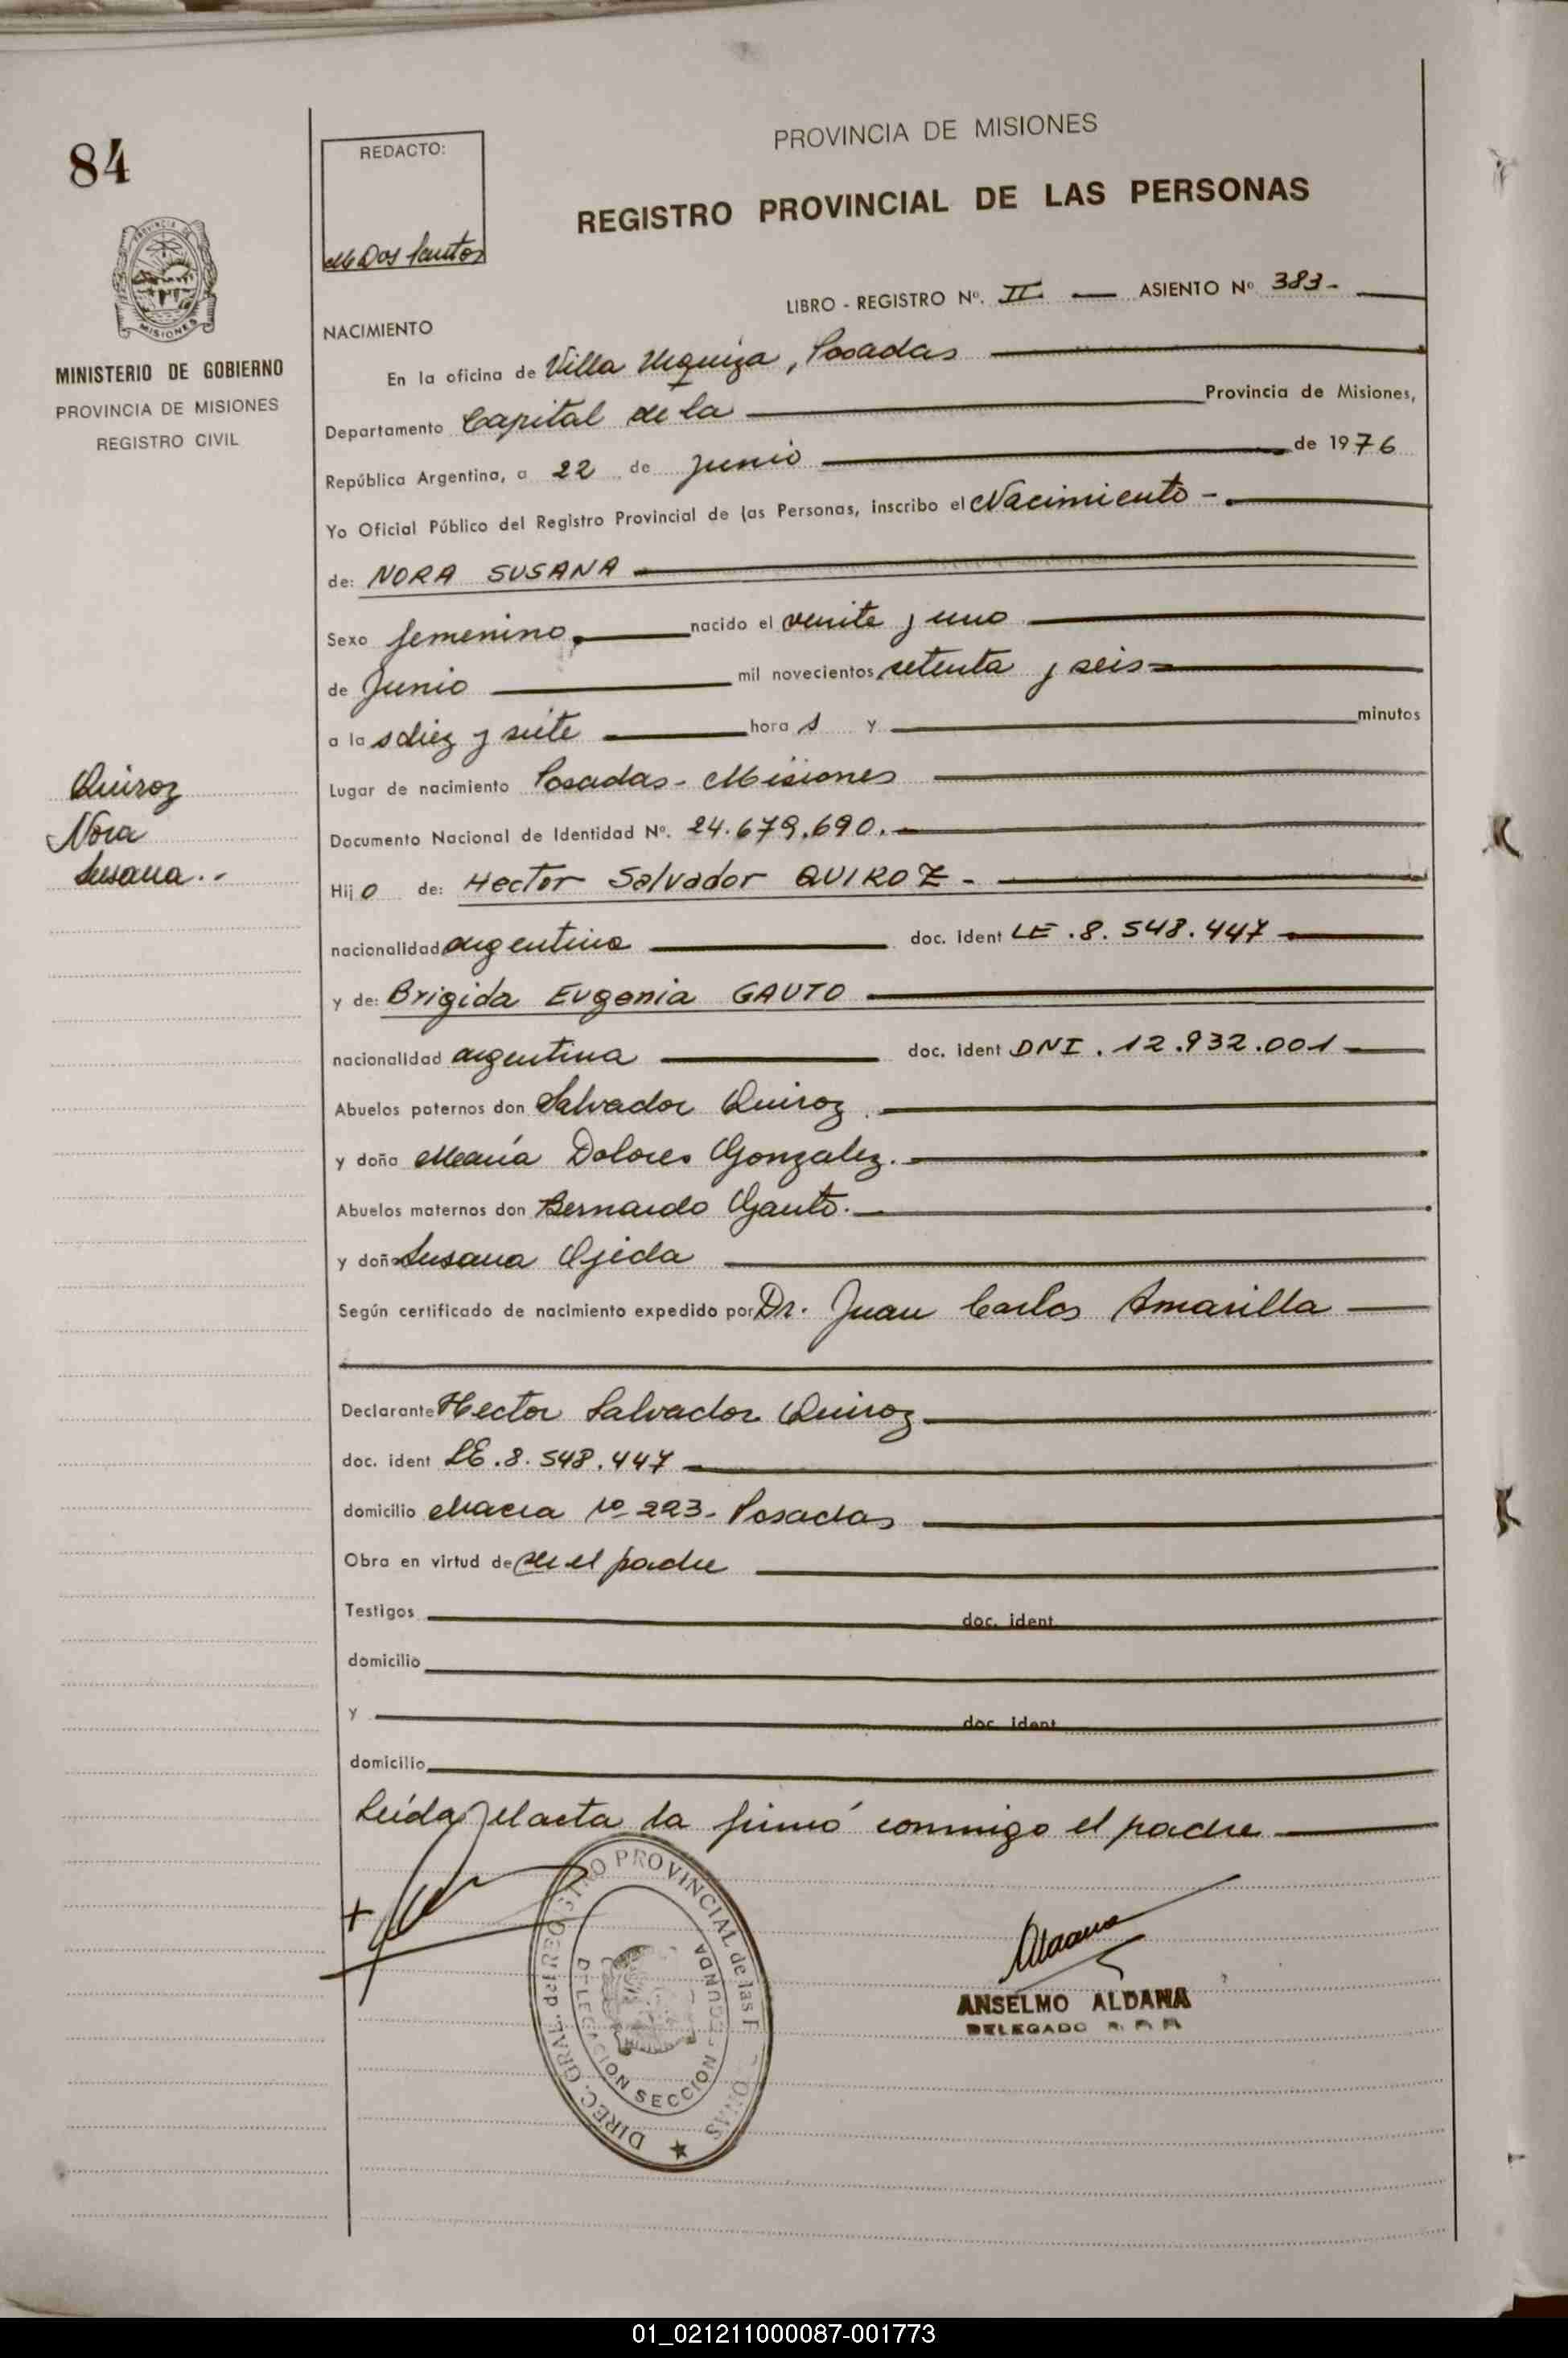 84
REDACTO:
M Dos Santos
PROVINCIA DE MISIONES
REGISTRO PROVINCIAL DE LAS PERSONAS
MISIONES
MINISTERIO DE GOBIERNO
PROVINCIA DE MISIONES
REGISTRO CIVIL
LIBRO - REGISTRO Nº. II ASIENTO Nº 383-
NACIMIENTO
En la oficina de Villa Urquiza, Posadas
Departamento Capital de la Provincia de Misiones,
República Argentina, a 22 de Junio de 1976
Yo Oficial Público del Registro Provincial de las Personas, inscribo el Nacimiento -
de: NORA SUSANA
Sexo femenino, nacido el veinte y uno
de Junio mil novecientos setenta y seis
a las diez y siete horas y minutos
Lugar de nacimiento Posadas - Misiones
Quiroz
Nora
Susana..
Documento Nacional de Identidad Nº. 24.679.690.
Hijo de: Hector Salvador QUIROZ -
nacionalidad argentina doc. ident LE.8.548.447
y de: Brigida Eugenia GAUTO
nacionalidad argentina doc. ident DNI. 12.932.001
Abuelos paternos don Salvador Quiroz
y doña María Dolores Gonzalez.
Abuelos maternos don Bernardo Gauto.
y doña Susana Ojeda
Según certificado de nacimiento expedido por Dr. Juan Carlos Amarilla
Declarante Hector Salvador Quiroz
doc. ident LE.8.548.447
domicilio Nº 223- Posadas
Obra en virtud de ser el padre
Testigos doc. ident
domicilio
y doc. ident
domicilio
Leída el acta la firmó conmigo el padre
DIREC. GRAL. del REGISTRO PROVINCIAL de las
DELEGACION SECCION SEGUNDA
ANSELMO ALDANA
DELEGADO R. P. P.
01_021211000087-001773